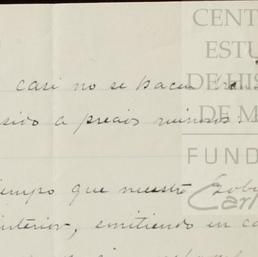 CENT
ESTU
DE HIS
DE M
FUND
Carl
casi no se hacen
sido a precios ruinosos.
iempo que nuestro Gob
interior, emitiendo en ca